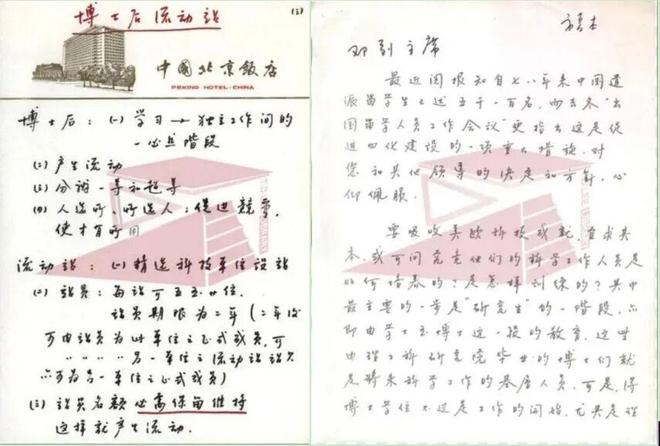 博士后流动站
(5)
中國北京飯店
PEKING HOTEL·CHINA
博士后：(一) 学习→独立工作间的
一必点階段
(二) 产生流动
(三) 分諎一导和超导
(四) 人选所、所选人：促进競争，
使才有所用
流动站：(一) 精选科技单位設站
(二) 站員：每站可五至廿位.
站員期限为二年 (二年后
可由站員为此单位之正式或員,可
〃 〃 〃 〃 另一单位之流动站站員
六可为另一单位之正式或員)
(三) 站員名額必需保留维持
这样就产生流动.
邓副主席
最近閱报知自七八年来中国遣
派留学生已达五千一百名，而去冬“出
国留学人員工作会议”更指出这是促
进四化建設的一項重大措施，对
您和其他領导的决定和方針，心
仰佩服.
要吸收美欧科技成就，首求其
本，或可问究竟他们的科学工作人員是
如何培养的？是怎样训練的？其中
最主要的一步是“研究生”的一階段，亦
即由学士至博士这一段的教育，这些
由理工科研究院毕业的博士们就
是将来科学工作的基层人員.可是，得
博士学位不过是工作的開始，尤其是在